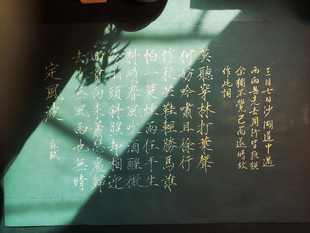 三月七日沙湖道中遇
雨雨具先去同行皆狼狽
余獨不覺已而遂晴故
作此詞
莫聽穿林打葉聲
何妨吟嘯且徐行
竹杖芒鞋輕勝馬誰
怕一蓑煙雨任平生
料峭春風吹酒醒微
山頭斜照却相迎
首向來蕭瑟處歸
去也無風雨也無晴
定風波